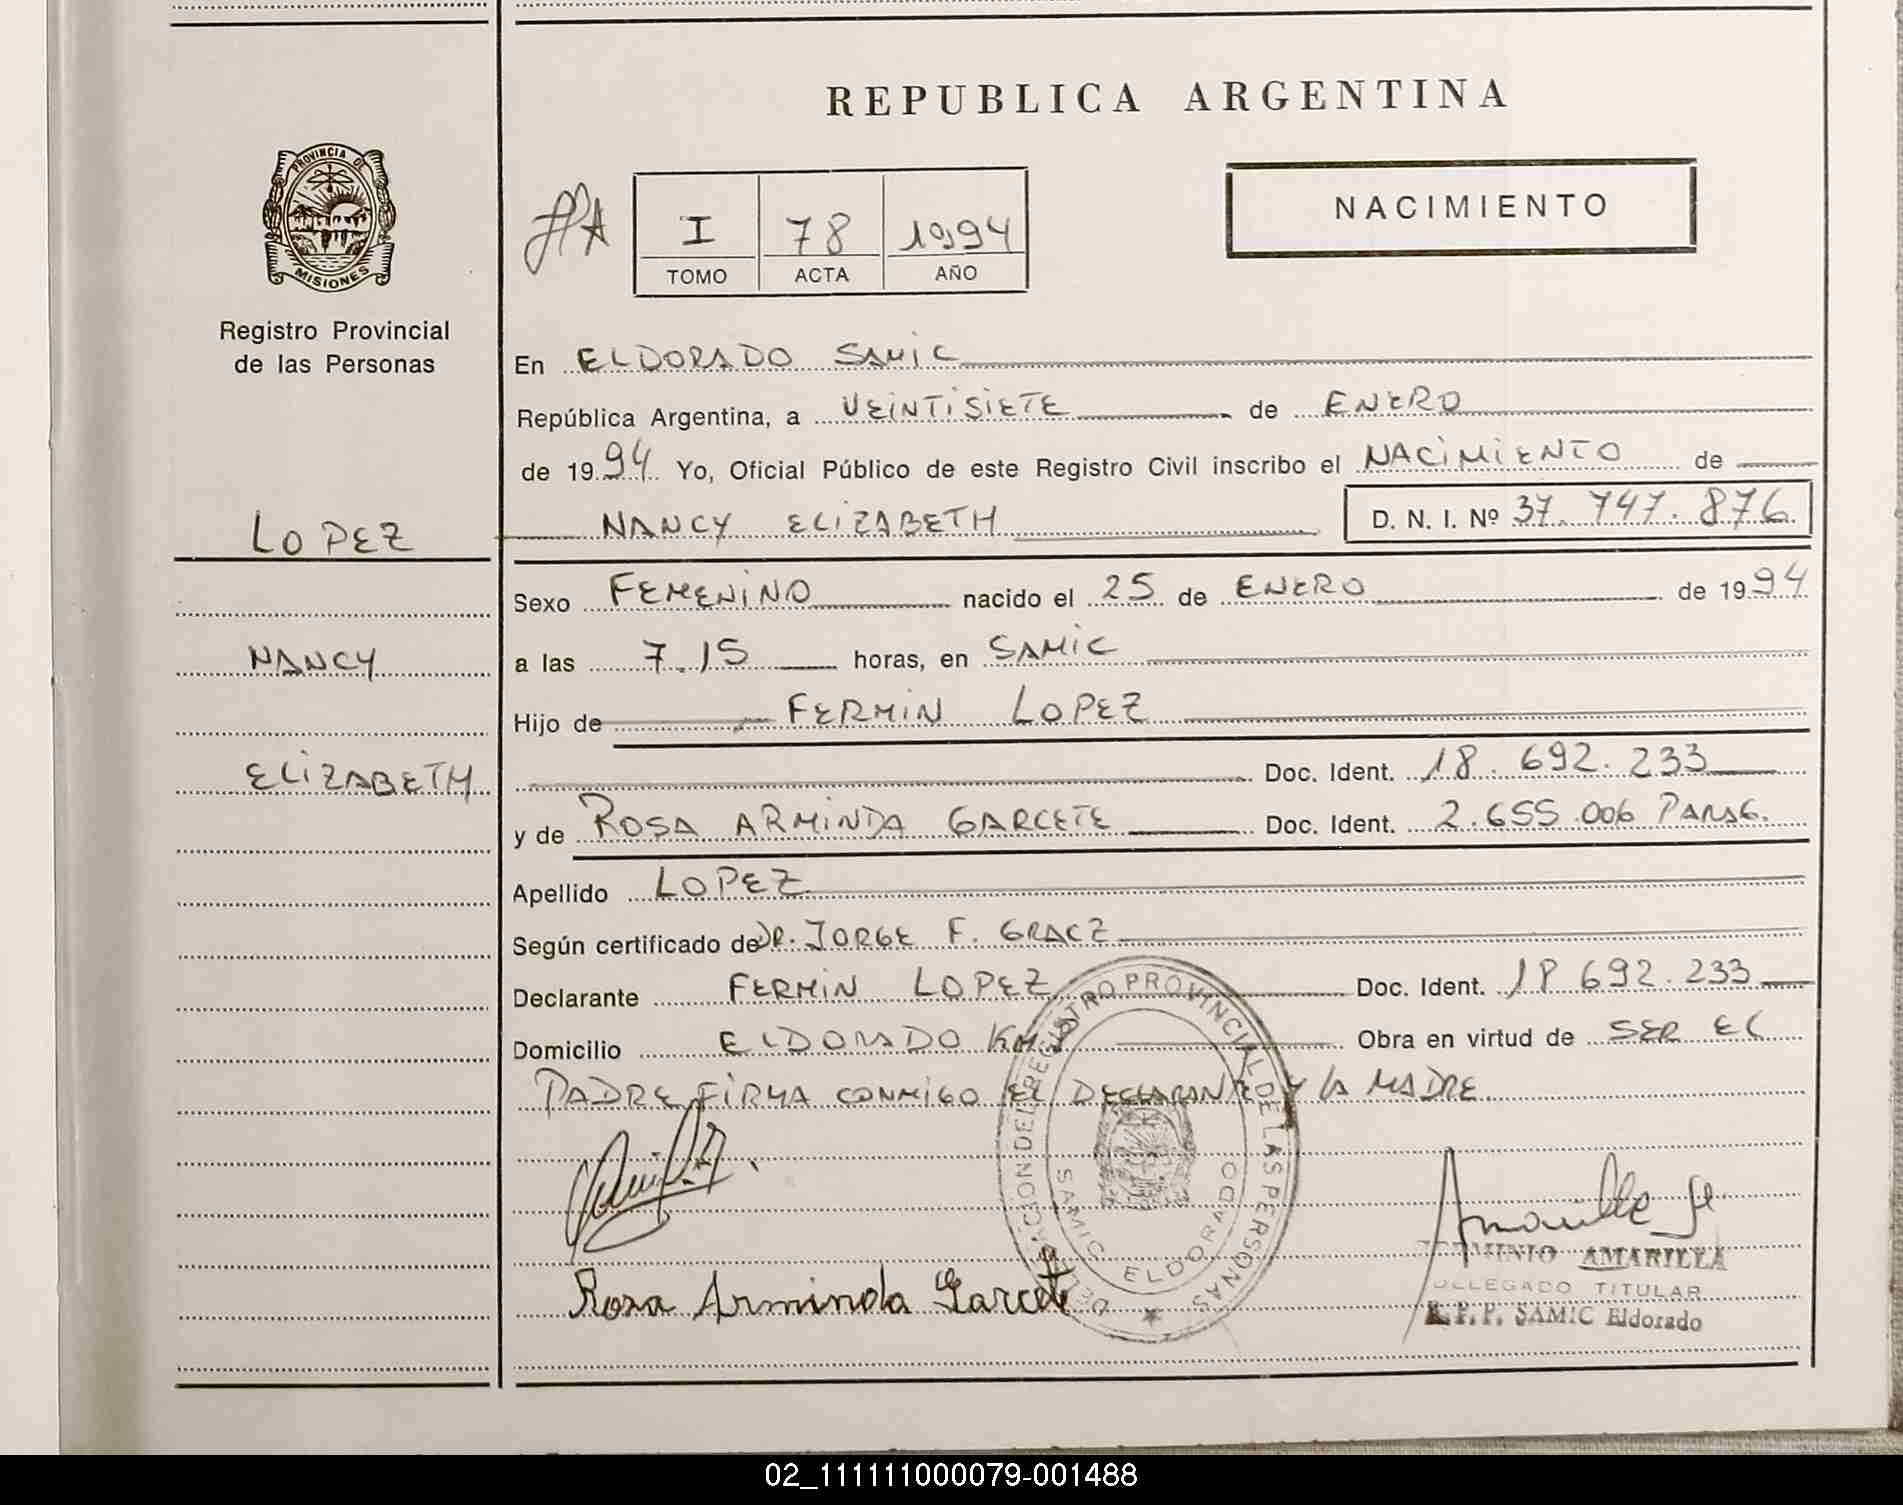 REPUBLICA ARGENTINA
PROVINCIA DE
MISIONES
Registro Provincial
de las Personas
I 78 1994
TOMO ACTA AÑO
NACIMIENTO
En ELDORADO SAMIC
República Argentina, a VEINTISIETE de ENERO
de 1994 Yo, Oficial Público de este Registro Civil inscribo el NACIMIENTO de
NANCY ELIZABETH D. N. I. Nº 37.747.876
LOPEZ
NANCY
ELIZABETH
Sexo FEMENINO nacido el 25 de ENERO de 1994
a las 7.15 horas, en SAMIC
Hijo de FERMIN LOPEZ
Doc. Ident. 18.692.233
y de ROSA ARMINDA GARCETE Doc. Ident. 2.655.006 PARAG.
Apellido LOPEZ
Según certificado de DR. JORGE F. GRACZ
Declarante FERMIN LOPEZ Doc. Ident. 18 692.233
Domicilio ELDORADO KM Obra en virtud de SER EL
PADRE FIRMA CONMIGO EL DECLARANTE Y LA MADRE
DEL REGISTRO PROVINCIAL DE LAS PERSONAS
SAMIC ELDORADO
Rosa Arminda Garcete
AMARILLA
DELEGADO TITULAR
R.P.P. SAMIC Eldorado
02_111111000079-001488